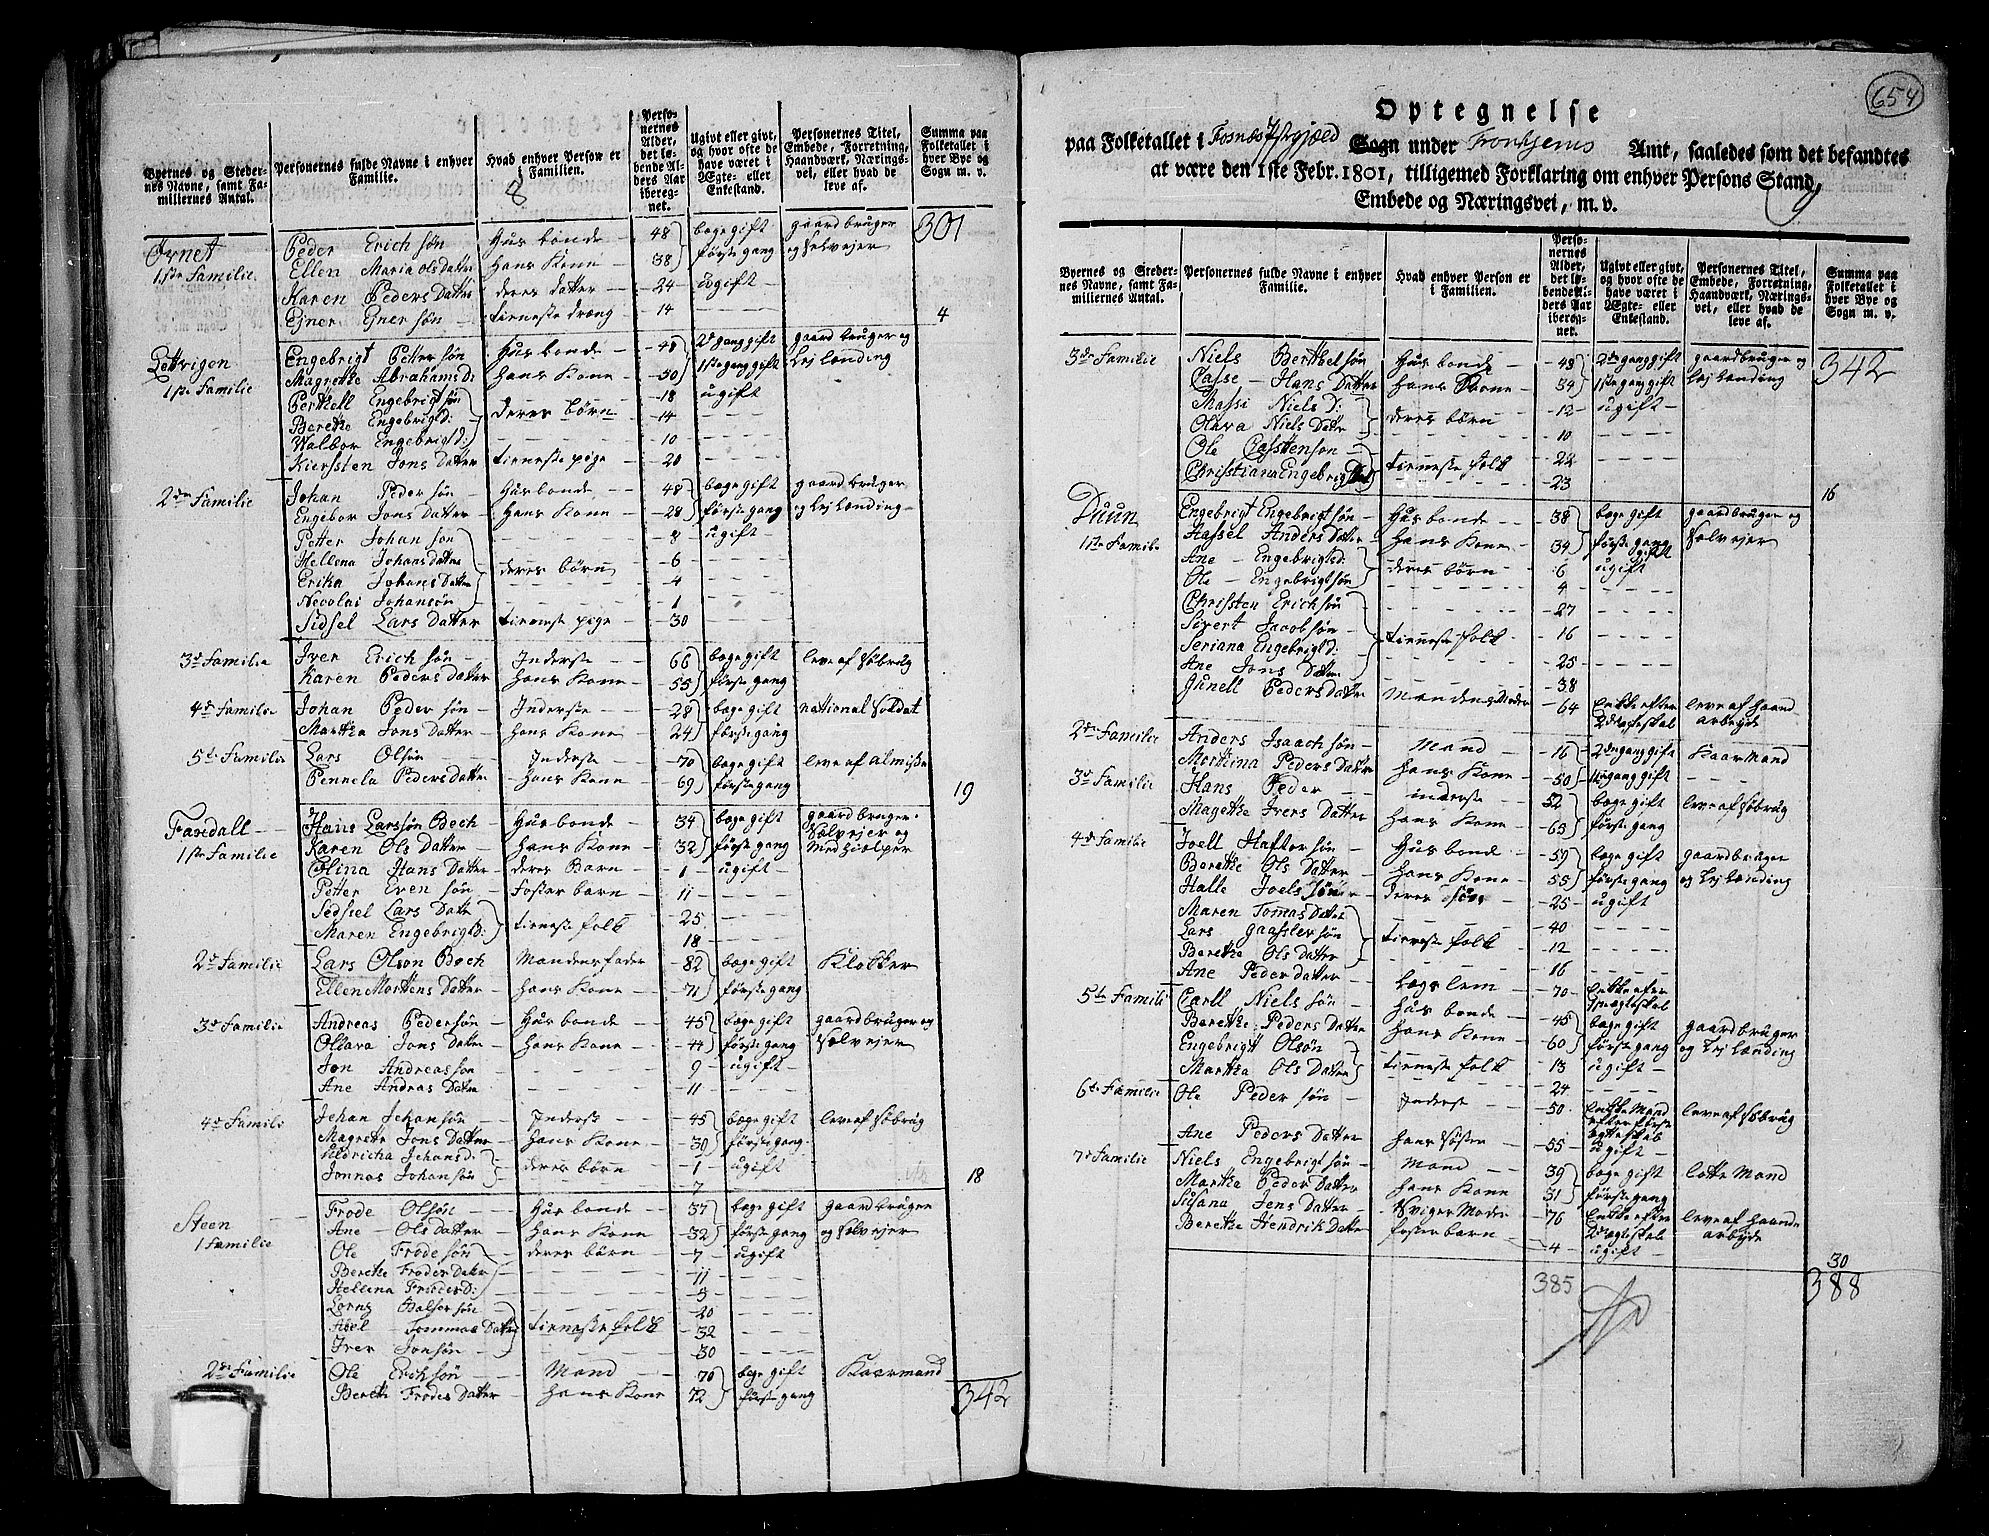 Byernes og Steder-
nes Navne, samt Fa-
miliernes Antal.
Personernes fulde Navne i enhver
Familie.
Hvad enhver Person er
i Familien.
8
Perso-
nernes
Alder,
det lø-
bende Al-
ders Aar
iberegnet.
Ugivt eller givt,
og hvor ofte de
have været i
Ægte- eller
Enkestand.
Personernes Titel,
Embede, Forretning,
Haandværk, Nærings-
vei, eller hvad de
leve af.
Summa paa
Folketallet i
hver Bye og
Sogn m. v.
301
1ste Familie Peder Erich søn Husbonde 48 bæge gift gaardbruger
Ellen Maria Ols Datter hans Kone 38 første gang og selvejer
Karen Peders Datter deres datter 24 ugift
Ejner Ejner søn tieneste dreng 14 4
1ste Familie Engebrigt Petter søn Husbonde 48 2den gang gift gaard bruger og
Magrethe Abrahams D: hans Kone 50 1ste gang gift Lej lænding
Berthell Engebrigt søn deres børn 18 ugift
Berethe Engebrigtd: 14
Walbor Engebrigtd: 10
Kiersten Jons Datter tieneste pige 20
2den Familie Johan Peder søn Husbonde 48 bæge gift gaard bruger
Engebor Jons Datter hans Kone 28 første gang og Lej Lænding
Petter Johan søn 8 ugift
Hellena Johans Datter deres børn 6
Erika Johans Datter 4
Necolai Johansøn 1
Sidsel Lars Datter tieneste pige 30
3d Familie Iver Erich søn Inderste 66 bæge gift leve af søbrug
Karen Peders Datter hans Kone 55 første gang
4d Familie Johan Peder søn Inderste 28 bæge gift national soldat
Martha Jons Datter hans Kone 24 første gang
5d Familie Lars Olsøn Inderste 70 bæge gift leve af almisse
Pennela Peders datter hans Kone 69 første gang 19
Hans Larssøn Bech Husbonde 34 bæge gift gaardbruger
1ste Familie Karen Ols Datter hans Kone 32 første gang Sælvejer og
Medhiælper
Olina Hans Datter deres Barn 1 ugift
Petter Even søn Foster barn 11
Sidsel Lars Datter tieneste folk 25
Maren Engebrigtd: 18
2d Familie Lars Olson Bech Mandens fader 82 bæge gift Klokker
Ellen Mortens Datter hans Kone 71 første gang
3d Familie Andreas Pedersøn Husbonde 45 bæge gift gaardbruger og
Ollava Jons Datter hans Kone 44 første gang Sælvejer
Jon Andreas søn 9 ugift
Ane Andreas Datter 11
4d Familie Johan Johansøn Inderste 45 bæge gift leve af søbrug
Magrete Jons Datter hans Kone 39 første gang
Johans d: deres børn 1 ugift
Jonnas Johansøn 7 18
Steen Frode Olsøn Husbonde 37 bæge gift gaardbruger
1 Familie Ane Ols Datter hans Kone 32 første gang og selvejer
Ole Frode søn deres børn 7 ugift
Berethe Frodes Datter 11
Hellena Frodes d: 3
Balser søn 20
Abel Tommas Datter tieneste folk 32
Iver Jonsøn 30
2de Familie Ole Erich søn Mand 70 bæge gift Kaarmand
Berethe Frodes Datter hans Kone 72 første gang
342
654
Optegnelse
paa Folketallet i Fosnes Præstegjæld Sogn under Trontjems Amt, saaledes som det befandtes
at være den 1ste Febr. 1801, tilligemed Forklaring om enhver Persons Stand,
Embede og Næringsvei, m. v.
9
Byernes og Steder-
nes Navne, samt Fa-
miliernes Antal.
Personernes fulde Navne i enhver
Familie.
Hvad enhver Person er
i Familien.
Perso-
nernes
Alder,
det lø-
bende Al-
ders Aar
iberegnet.
Ugivt eller givt,
og hvor ofte de
have været i
Ægte- eller
Enkestand.
Personernes Titel,
Embede, Forretning,
Haandværk, Nærings-
vei, eller hvad de
leve af.
Summa paa
Folketallet i
hver Bye og
Sogn m. v.
3de Familie Niels Berthel søn Husbonde 48 2den gang gift gaardbruger og 342
Hans Datter hans Kone 34 1ste gang gift Lej Lænding
Massi Niels D: deres børn 12 ugift
Olava Niels Datter 10
Ole Casstenson tieneste folk 22
Christiana Engebrigtd 23 16
Duun Engebrigt Engebrigt søn Husbonde 38 bæge gift gaardbruger og
1ste Famil. Anders Datter hans Kone 34 første gang gift selvejer
Ane Engebrigtd: deres børn 6 ugift
Ole Engebrigt søn 4
Christen Erich søn tieneste folk 27
Sivert Jacob søn 16
Seriana Engebrigtd: 25
Ane Jons Datter 38
Gunell Peders Datter Mandens Moder 64 Enke efter leve af haand
2d ægteskab arbejde
2den Familie Anders Isaach søn Mand 16 2den gang gift Kaarmand
Marthina Peders Datter hans Kone 50 1ste gang gift
3d Familie Hans Peder inderste 52 bæge gift leve af søbrug
Magethe Ivers Datter hans Kone 63 første gang
4d Familie Joell Haftor søn Husbonde 59 bæge gift gaardbruger
Berethe Ols Datter hans Kone 55 første gang og Lej Lænding
Halle Joels søn deres søn 25 ugift
Maren Tomas Datter tieneste folk 40
Lars søn 12
Berethe Ols Datter 16
Ane Peder Datter Lægs lem 70 Enke efter
1ste ægteskab
5te Famili Carll Niels søn Husbonde 45 bæge gift gaardbruger
Berethe Peders Datter hans Kone 60 første gang og Lej Lænding
Engebrigt Olsøn tieneste folk 13 ugift
Martha Ols Datter 24
6te Familie Ole Peder søn Inderst 50 Enke Mand leve af søbrug
efter første
ægteskab
Ane Peders Datter hans søster 55 ugift
7d Familie Niels Engebrigt søn Mand 39 bæge gift lotte Mand
Martha Peder Datter hans Kone 31 første gang
Susana Jens Datter Sviger Moder 76 Enke efter leve af haand
2d ægteskab arbejde
Berethe Hendrik Datter foster barn 4 ugift
30
385 388